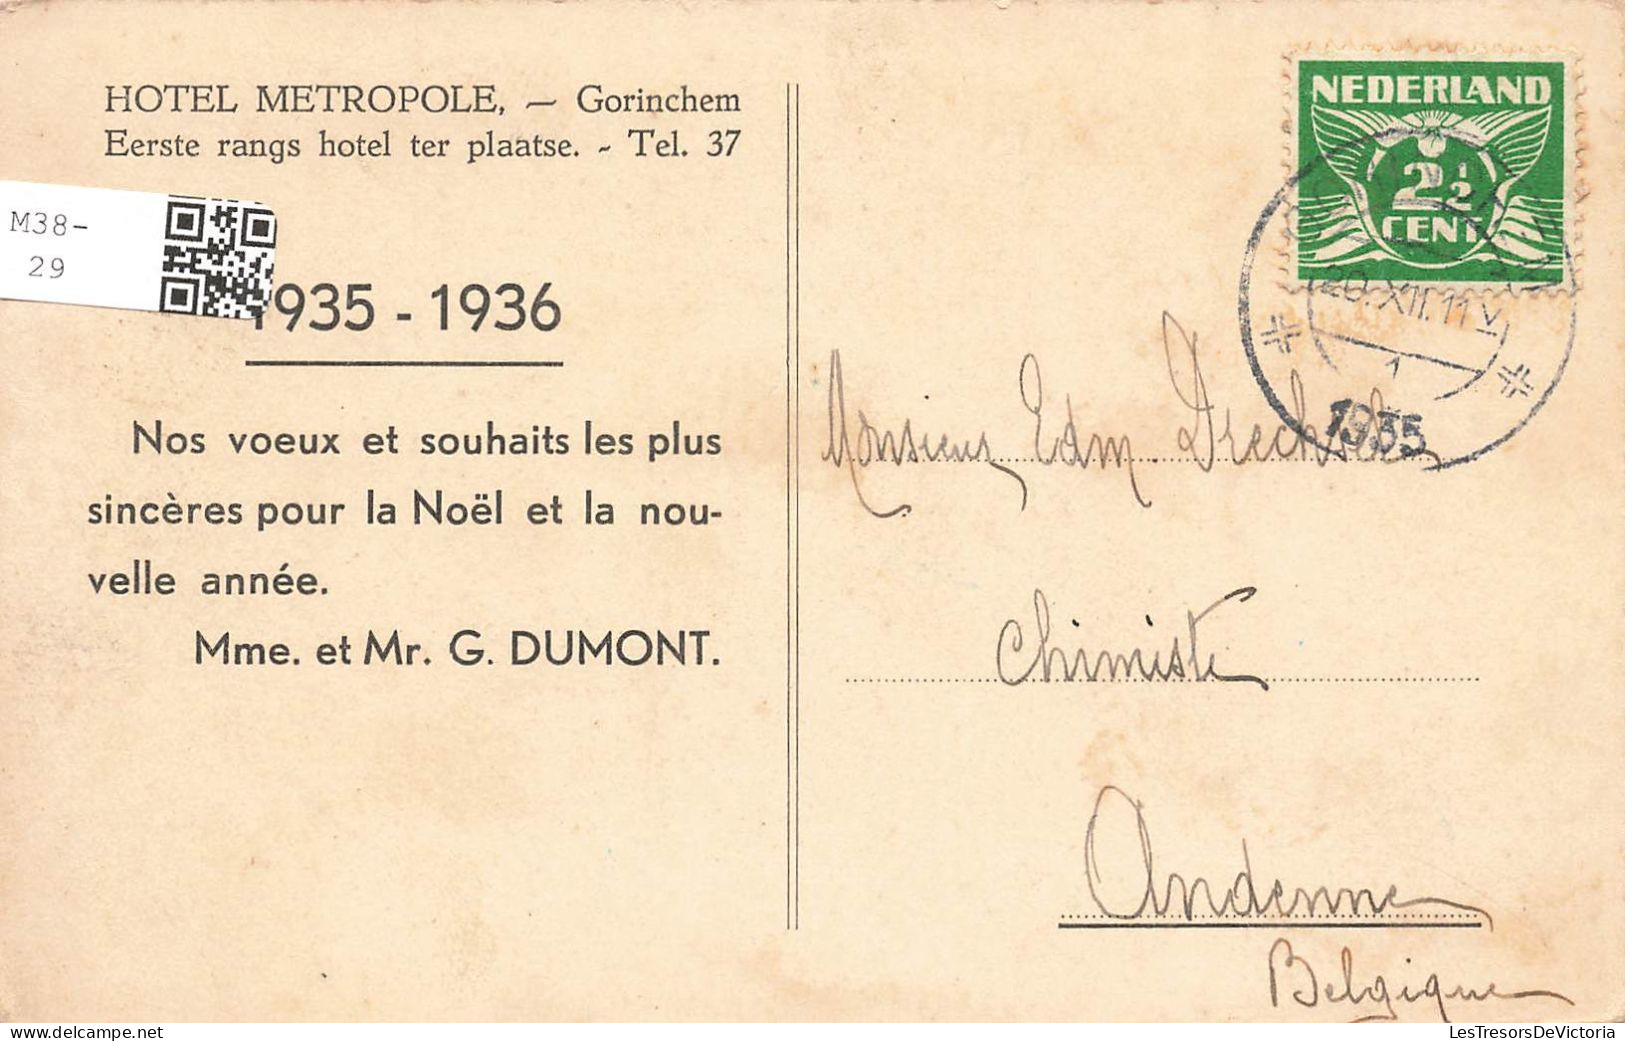 HOTEL METROPOLE, — Gorinchem
Eerste rangs hotel ter plaatse. - Tel. 37
M38-
29
1935 - 1936
Nos voeux et souhaits les plus
sincères pour la Noël et la nou-
velle année.
Mme. et Mr. G. DUMONT.
NEDERLAND
2 1/2
CENT
20.XII.11 V
1
1935
Monsieur Edm. Drechsel
Chimiste
Andenne
Belgique
LesTresorsDeVictoria